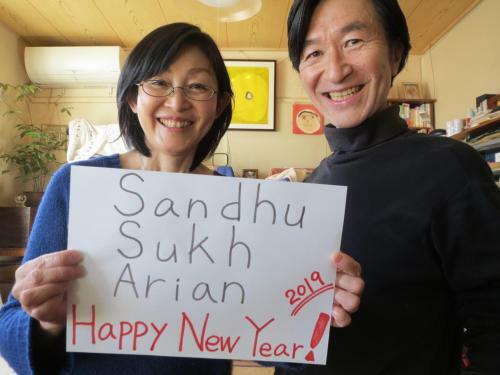 Sandhu
Sukh
Arian
2019
Happy New Year!